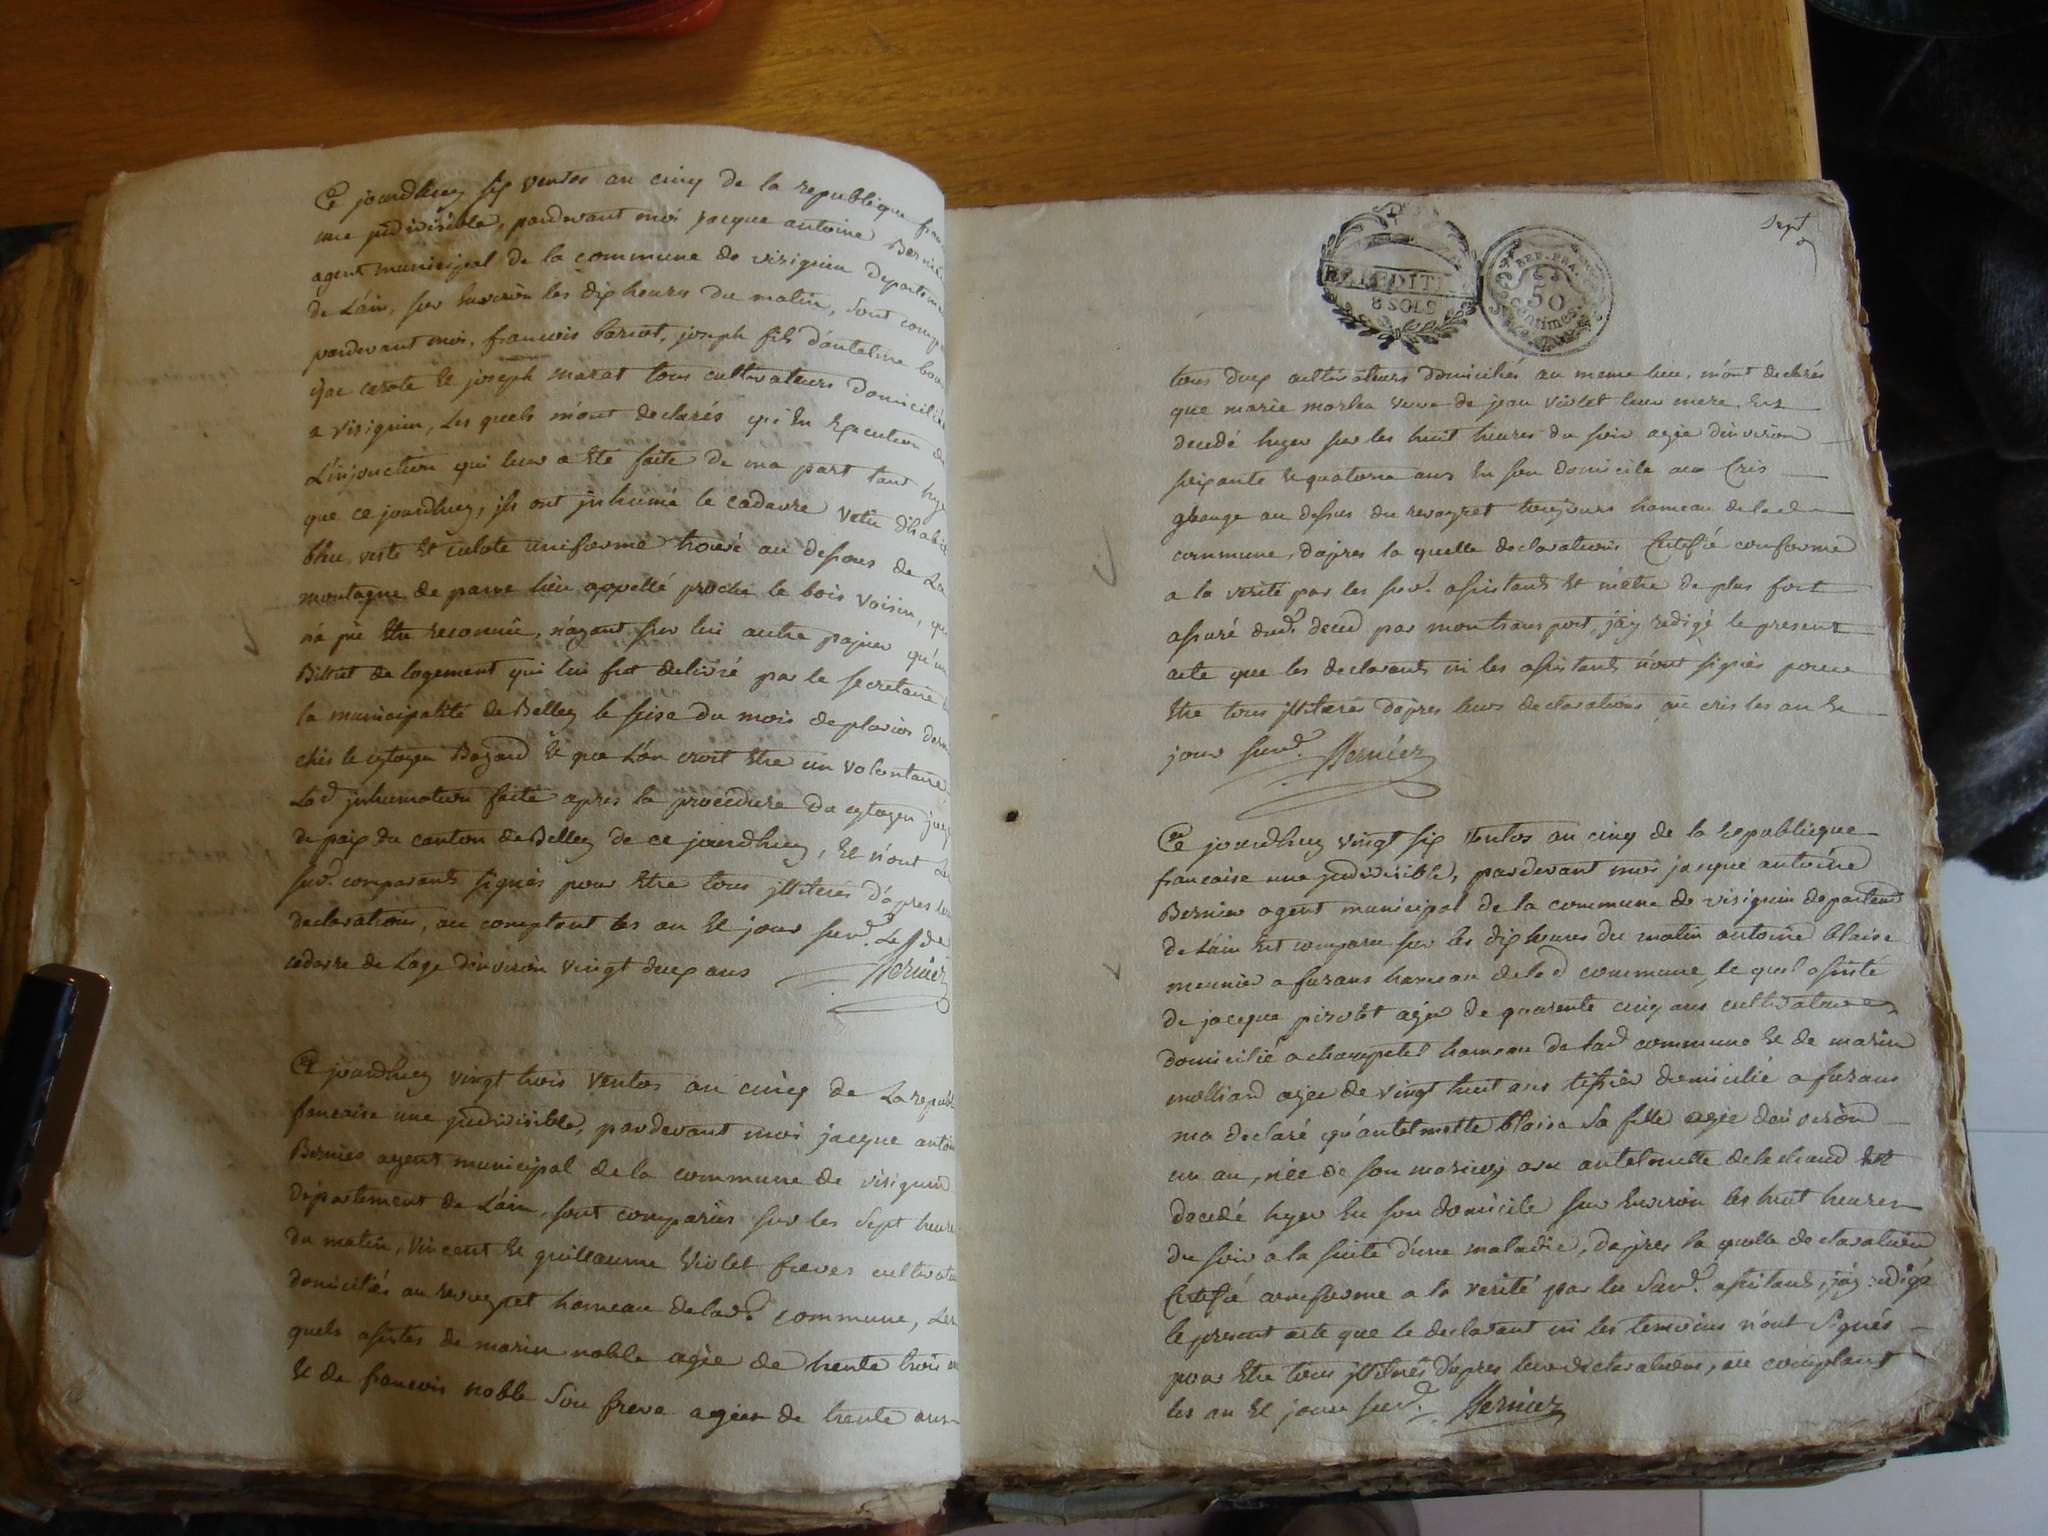 Ce jourdhuy six ventos an cinq de la republique fran
une jndivisible, pardevant moi jacque antoine Bernier
agent municipal de la commune de virignin departeme
de L'ain, sur Environ les dix heures du matin, sont comp
pardevant moi, francois barrat, joseph fils d'antelme
carote et joseph marat tous cultivateurs domiciliés
a virignin, Les quels m'ont declarés qu'en Execution de
L'injonction qui leur a Eté faite de ma part tant hyer
que ce jourdhuy, jls ont jnhumé le cadavre vetu d'habit
bleu, veste Et culote uniforme trouvé au dessous de La
montagne de parve lieu appellé proche le bois voisin, qui
n'a pû Etre reconnu, n'ayant sur lui autre papier qu'un
Billiet de logement qui lui fut delivré par le secretaire de
la municipalité de Belley le seise du mois de pluvios dern
chés le cytoyen Bozand Et que L'on croit Etre un volontaire
Lad. jnhumation faite apres la procedure du cytoyen juge
de paix du canton de Belley de ce jourdhuy, Et n'ont Les
sud. comparants signés pour Etre tous jlliterés d'apres leur
declarations, au comptant les an Et jour sud. Led. de
cadavre de L'age d'environ vingt deux ans Bernier
Ce jourdhuy vingt trois ventos an cinq de La republ
francaise une jndivisible, pardevant moi jacque antoin
Bernier agent municipal de la commune de virignin
departement de L'ain, sont comparus sur les sept heures
du matin, vincent Et guillaume Violet freres cultivate
domiciliés au revoyret hameau de lad. commune, Les
quels assistés de marin noble agée de trente trois a
Et de francois noble Son frere agée de trente ans
sept
REP. FRA.
8 SOLS
50
centimes
tous deux cultivateurs domiciliés au meme lieu, m'ont declarés
que marie marlin veuve de jean violet leur mere Est
decedé hyer sur les huit heures du soir agée d'environ
soixante Et quatorse ans En son domicile au Cris
grange au dessus du revoyret toujours hameau de lad.
commune, d'apres la quelle declarations Certifié conforme
a la verité par les sud. assistants Et m'etre de plus fort
assuré dud. deced par mon transport, j'ay redigé le present
acte que les declarants ni les assistants n'ont signés pour
Etre tous jlliterés d'apres leurs declarations, au cris les an Et
jour sud. Bernier
Ce jourdhuy vingt six ventos an cinq de la republique
francaise une jndivisible, pardevant moi jacque antoine
Bernier agent municipal de la commune de virignin departement
de L'ain Est comparu sur les dix heures du matin antoine blaise
meunier a furans hameau de lad. commune, le quel assisté
de jacque pirolet agée de quarente cinq ans cultivateur
domicilié a champetel hameau de lad. commune Et de marin
molliard agée de vingt huit ans tissier domicilié a furans
m'a declaré qu'antelmette blaise sa fille agée d'environ
un an, née de son mariage avec antelmette delechaud Est
decedé hyer En son domicile sur Environ les huit heures
du soir a la suite d'une maladie, d'apres la quelle declaration
Certifié conforme a la verité par les sud. assistants, j'ay redigé
le present acte que le declarant ni les temoins n'ont signés
pour Etre tous jlliterés d'apres leur declarations, au comptant
les an Et jour sud. Bernier